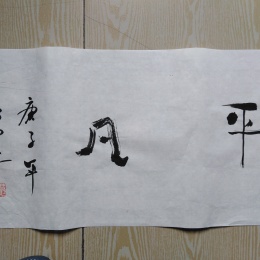 平凡
庚子年